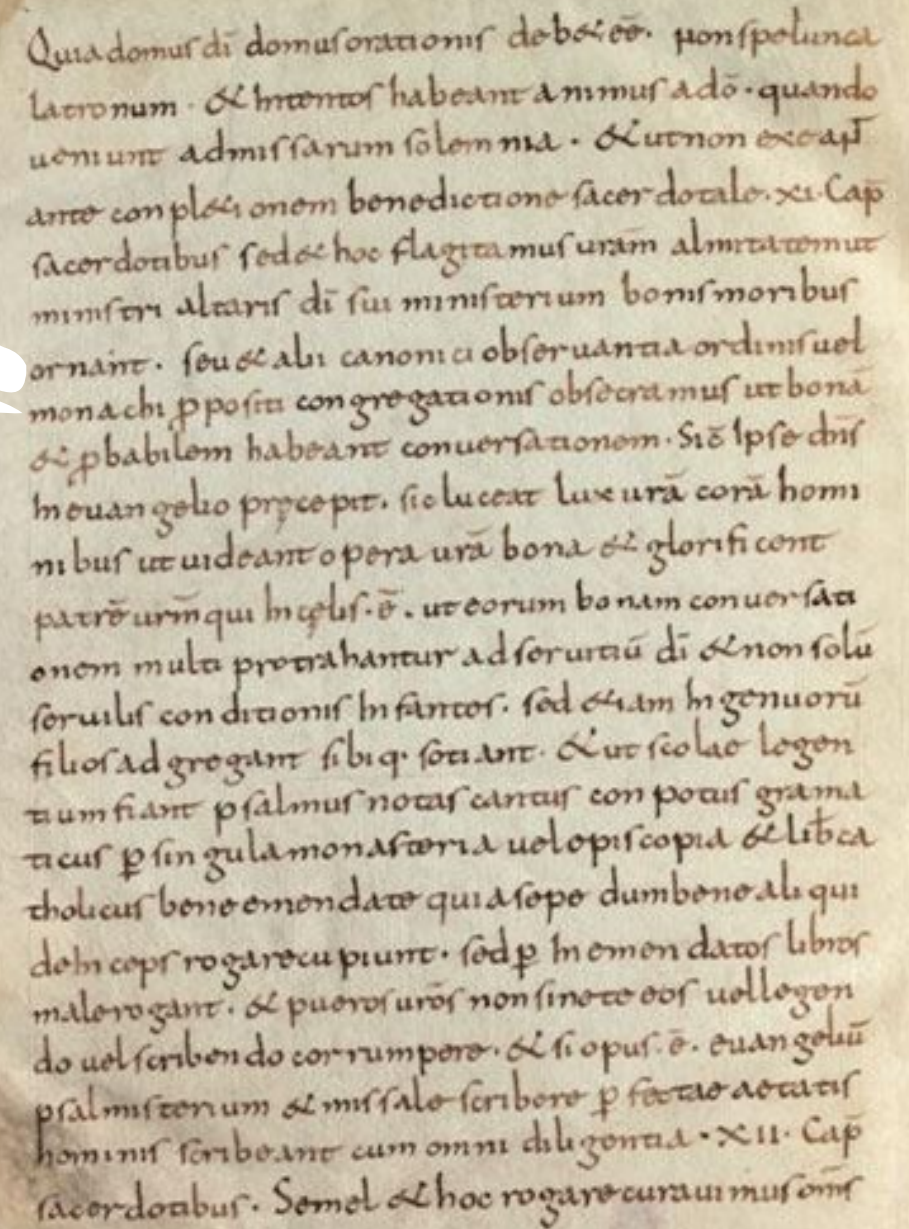 Quia domus dī domus orationis debet eē. non spelunca
latronum · & Intentos habeant animus adō · quando
ueniunt ad missarum solemnia · & ut non exeap̄
ante conpletionem benedictione sacerdotale · xi · Cap̄
sacerdotibus sed & hoc flagitamus uram̄ almitatem ut
ministri altaris dī sui ministerium bonis moribus
ornaīnt · seu & alii canonici obseruantia ordinis uel
monachi ꝓpositi congregationis obsecramus ut bonā
& ꝓbabilem habeant conuersationem · Sic̄ Ipse dn̄s
In euangelio pręcepit · sic luceat lux urā corā homi
nibus ut uideant opera urā bona & glorificent
patrē urm̄ qui In cęlis · ē · ut eorum bonam conuersati
onem multi protrahantur ad seruitiū dī & non solū
seruilis conditionis Infantes · sed &iam Ingenuorū
filios adgregant sibiq· sotiant · & ut scolae legen
tium fiant psalmus notas cantus conpotus grama
ticus ꝑ singula monasteria uel episcopia & lib̄ ca
tholicus bene emendate quia sepe dum bene aliqui
deInceps rogare cupiunt · sed ꝑ Inemendatos libros
male rogant · & pueros urōs non sinete eos uel legen
do uel scribendo corrumpere · & si opus · ē · euangeliū
psalmisterium & missale scribere ꝑfectae aetatis
hominis scribeant cum omni diligentia · XII · Cap̄
sacerdotibus · Semel & hoc rogare curauimus om̄s